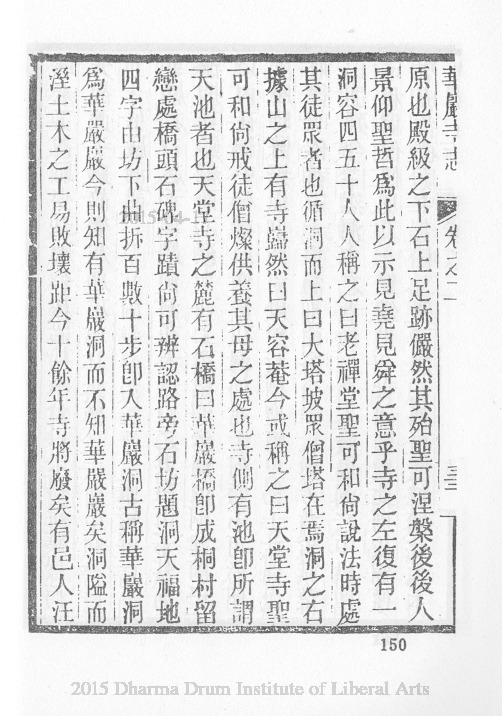 華巖寺志 卷之二 三三
原也殿級之下石上足跡儼然其殆聖可涅槃後後人
景仰聖哲爲此以示見堯見舜之意乎寺之左復有一
洞容四五十人人稱之曰老禪堂聖可和尙說法時處
其徒眾者也循洞而上曰大塔坡眾僧塔在焉洞之右
據山之上有寺巋然曰天容菴今或稱之曰天堂寺聖
可和尙戒徒僧燦供養其母之處也寺側有池卽所謂
天池者也天堂寺之麓有石橋曰華巖橋卽成桐村留
戀處橋頭石碑字蹟尙可辨認路旁石坊題洞天福地
四字由坊下曲折百數十步卽入華巖洞古稱華巖洞
爲華嚴巖今則知有華巖洞而不知華嚴巖矣洞隘而
溼土木之工易敗壞距今十餘年寺將廢矣有邑人汪
150
2015 Dharma Drum Institute of Liberal Arts